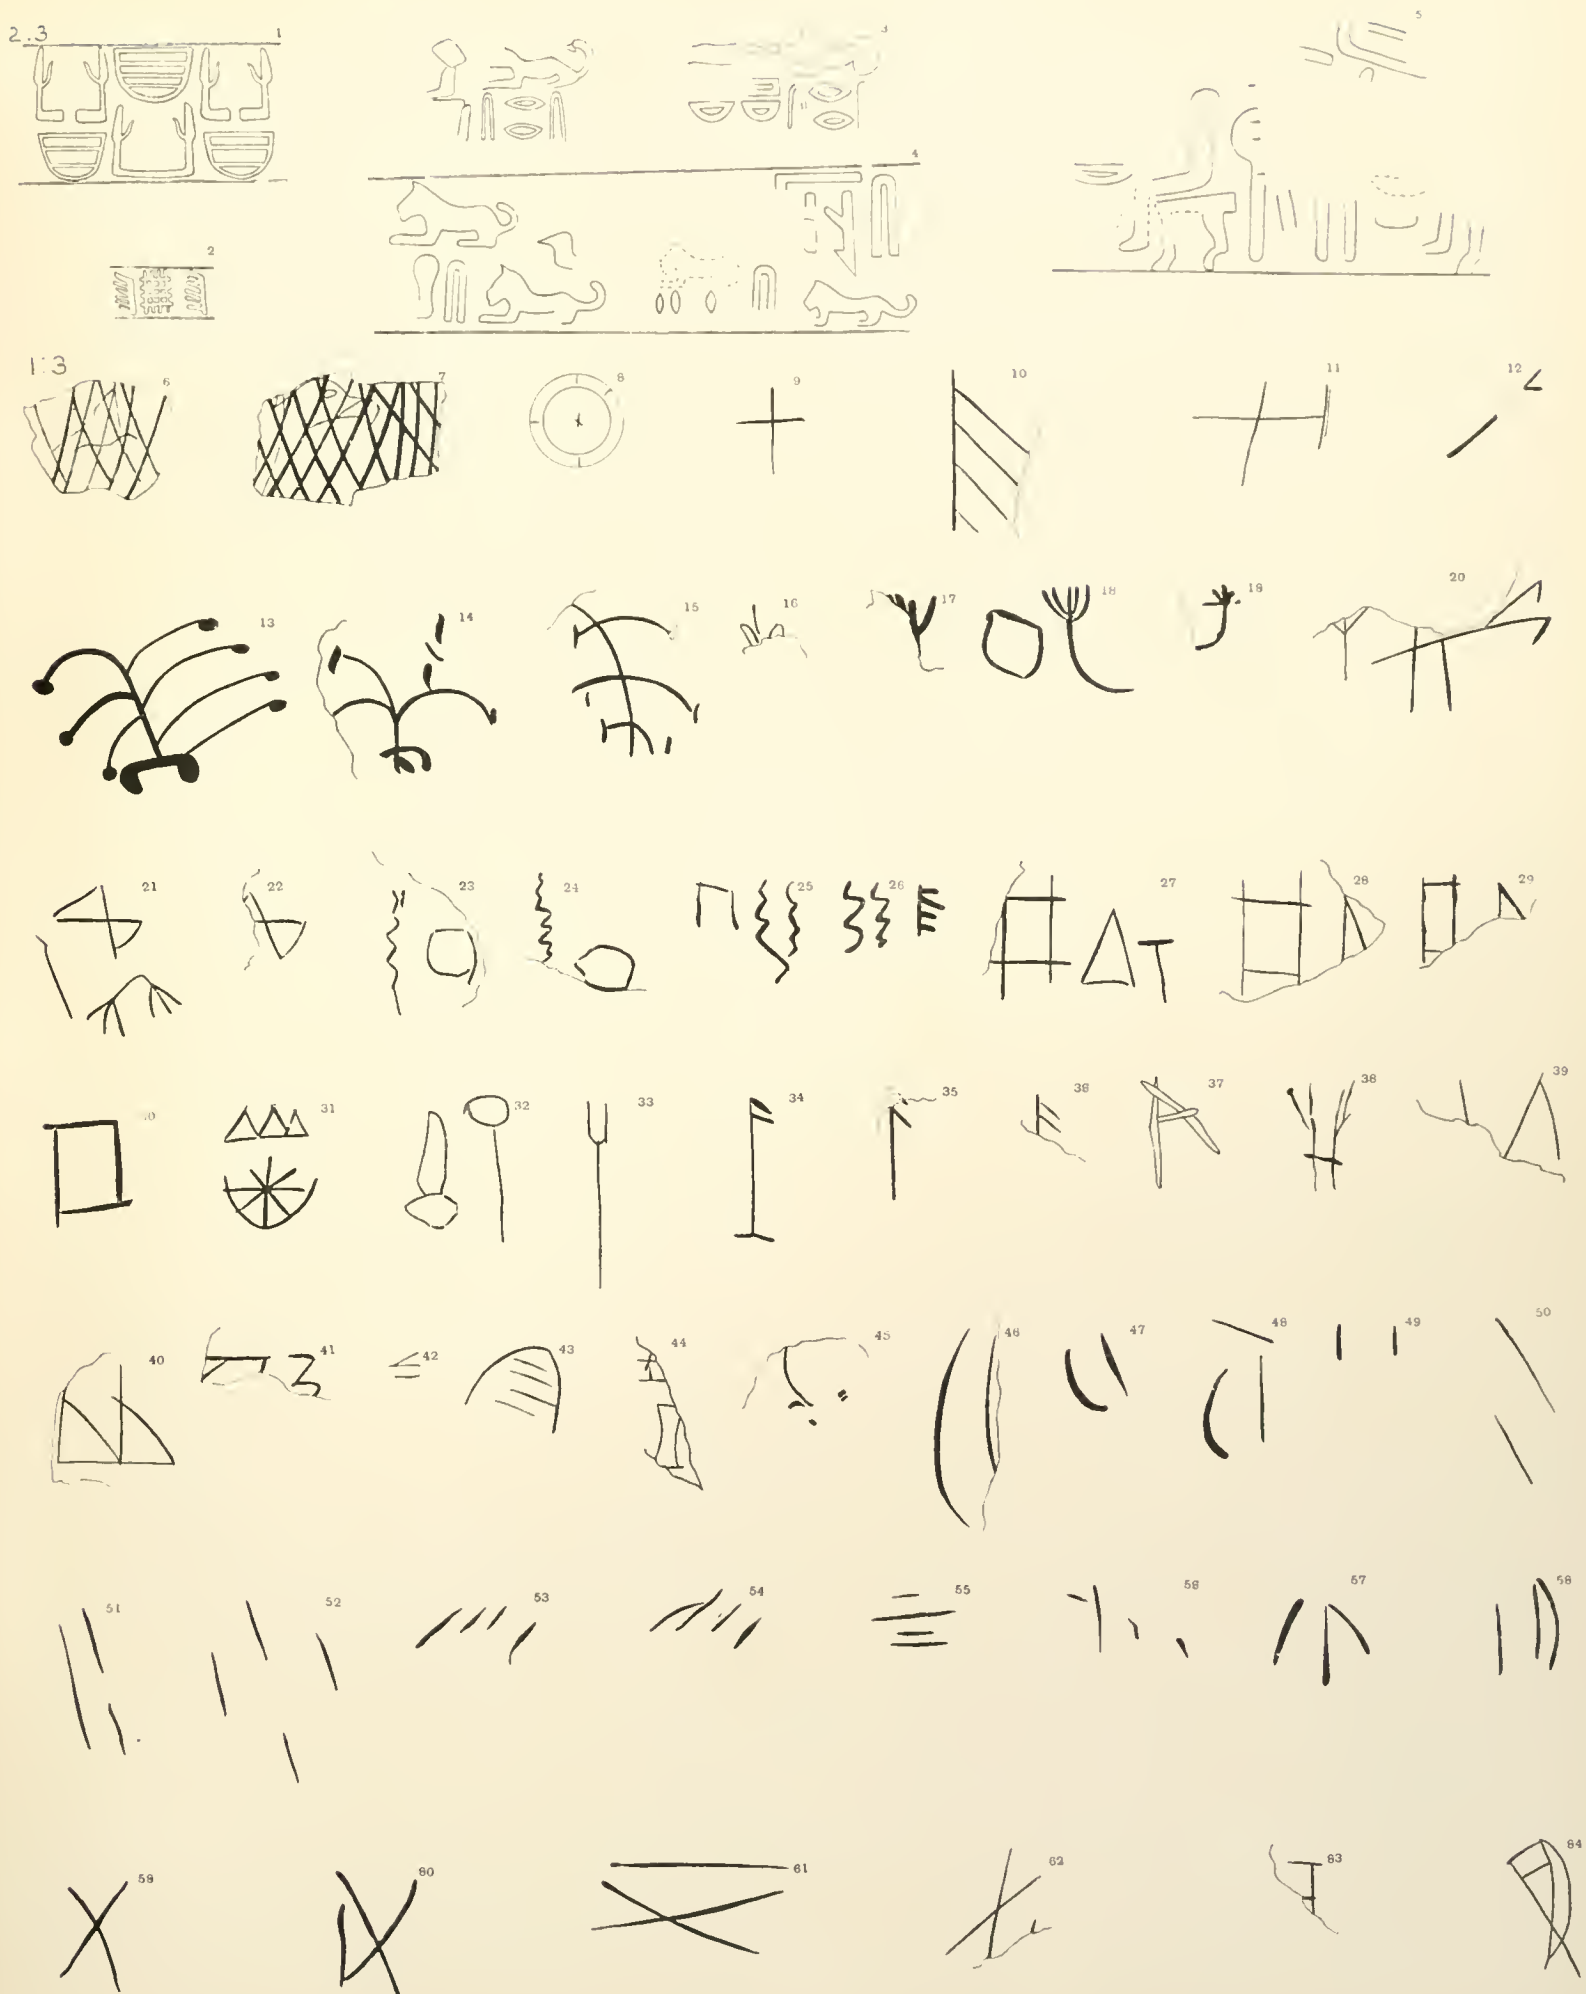 2:3 1 3 5
4
2
1:3 6 7 8 9 10 11 12
13 14 15 16 17 18 19 20
21 22 23 24 25 26 27 28 29
30 31 32 33 34 35 36 37 38 39
40 41 42 43 44 45 46 47 48 49 50
51 52 53 54 55 56 57 58
59 60 61 62 63 64